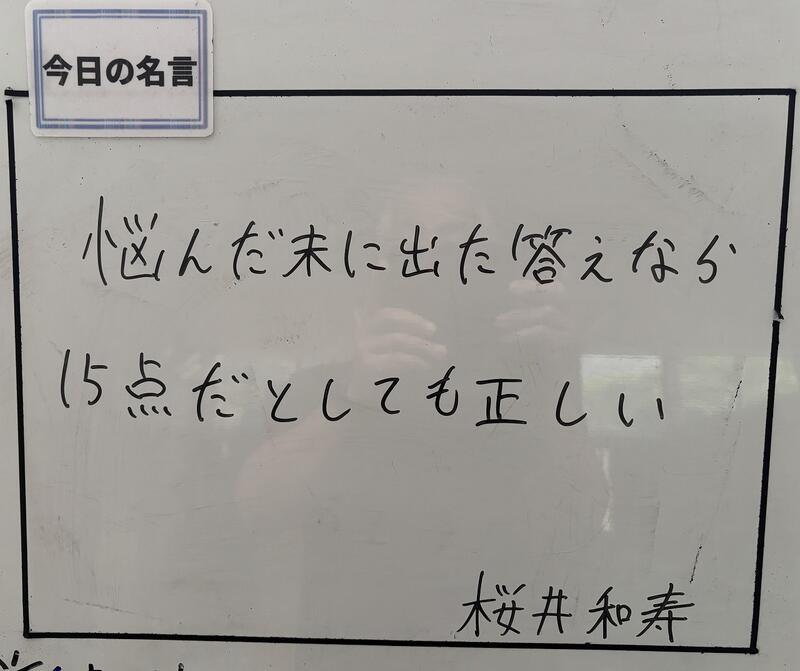 今日の名言
悩んだ末に出た答えなら
15点だとしても正しい
桜井和寿